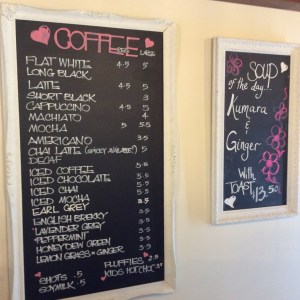 COFFEE
REG LARGE
FLAT WHITE 4.5 5
LONG BLACK
LATTE 4.5 5
SHORT BLACK 3
CAPPUCCINO 4.5 5
MACHIATO 4
MOCHA 5 5.5
AMERICANO
CHAI LATTE (SPICEY AVAILABLE!)
DECAF
ICED COFFEE 5.5
ICED CHOCOLATE 5.5
ICED CHAI 5.5
ICED MOCHA 5.5
EARL GREY 3.5
ENGLISH BREKKY 3.5
"LAVENDER GREY 3.5
"PEPPERMINT" 3.5
HONEYDEW GREEN 3.5
LEMON GRASS & GINGER 3.5
SHOTS .5
SOYMILK .5
FLUFFIES 2.5
KIDS HOT CHOC
SOUP
of the day...
Kumara
&
Ginger
With
TOAST $13.50